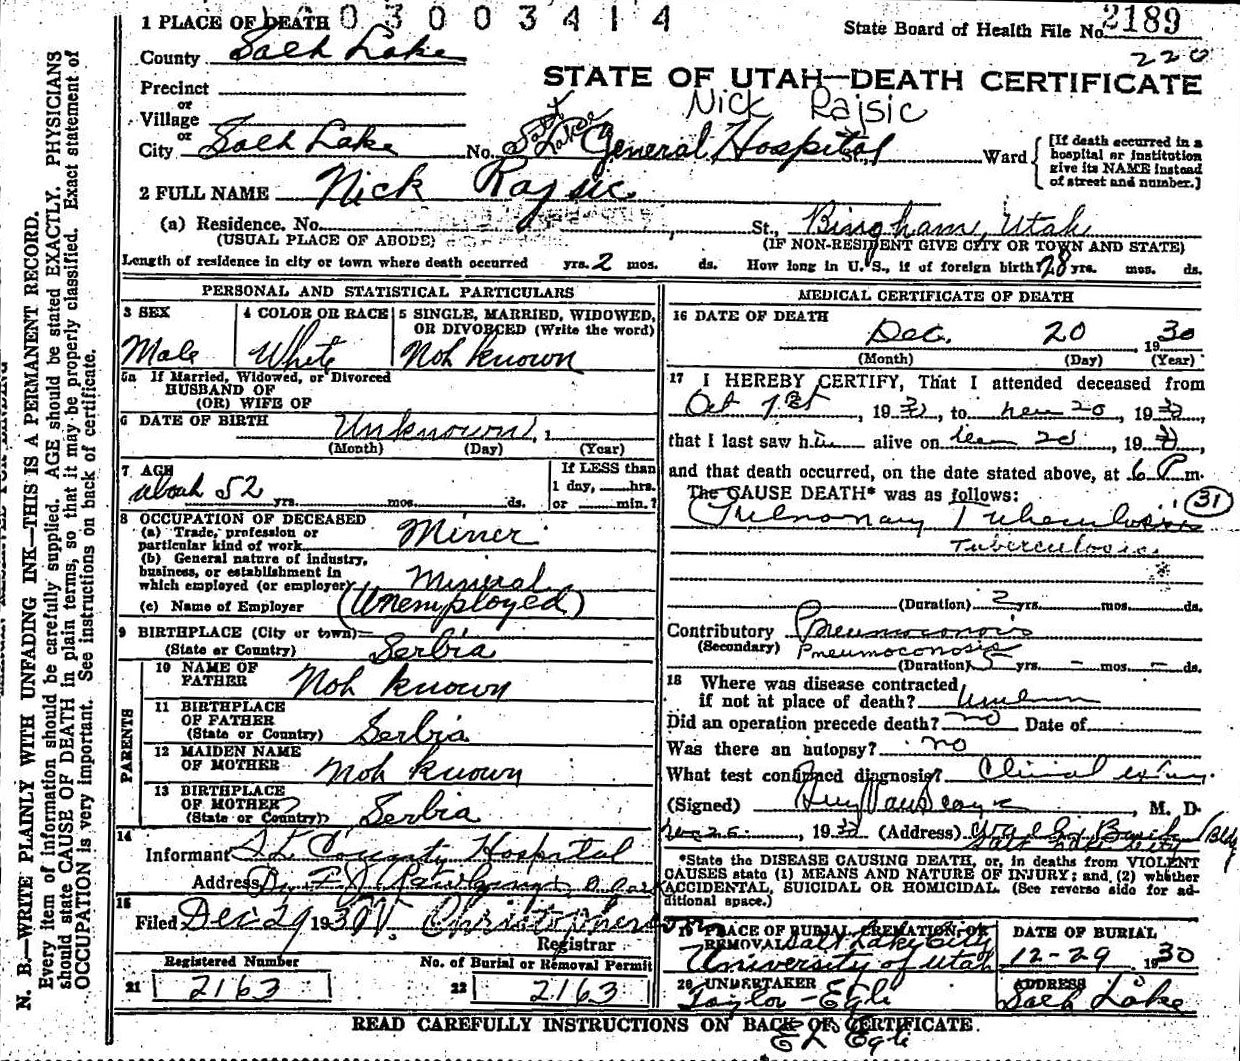 1 PLACE OF DEATH 03003414
State Board of Health File No. 2189
220
County Salt Lake
STATE OF UTAH—DEATH CERTIFICATE
Precinct
or
Nick Rajsic
Village
or
City Salt Lake No. Salt Lake General Hospital St., Ward
[If death occurred in a hospital or institution give its NAME instead of street and number.]
2 FULL NAME Nick Rajsic
(a) Residence. No. St., Bingham, Utah
(USUAL PLACE OF ABODE) (IF NON-RESIDENT GIVE CITY OR TOWN AND STATE)
Length of residence in city or town where death occurred yrs. 2 mos. ds. How long in U. S., if of foreign birth? 28 yrs. mos. ds.
PERSONAL AND STATISTICAL PARTICULARS
3 SEX
Male
4 COLOR OR RACE
White
5 SINGLE, MARRIED, WIDOWED,
OR DIVORCED (Write the word)
Not known
5a If Married, Widowed, or Divorced
HUSBAND OF
(OR) WIFE OF
6 DATE OF BIRTH Unknown, 1
(Month) (Day) (Year)
7 AGE
about 52 yrs. mos. ds.
If LESS than
1 day, hrs.
or min.?
8 OCCUPATION OF DECEASED
(a) Trade, profession or
particular kind of work Miner
(b) General nature of industry,
business, or establishment in
which employed (or employer) Mineral
(c) Name of Employer (Unemployed)
9 BIRTHPLACE (City or town)
(State or Country) Serbia
PARENTS
10 NAME OF
FATHER Not known
11 BIRTHPLACE
OF FATHER
(State or Country) Serbia
12 MAIDEN NAME
OF MOTHER Not known
13 BIRTHPLACE
OF MOTHER
(State or Country) Serbia
14
Informant S.L. County Hospital
Address Dr.
15
Filed Dec 29 1930 Christopherson
Registrar
Registered Number
21 2163
No. of Burial or Removal Permit
22 2163
MEDICAL CERTIFICATE OF DEATH
16 DATE OF DEATH
Dec. 20 1930
(Month) (Day) (Year)
17 I HEREBY CERTIFY, That I attended deceased from
Oct 1st, 1930, to 20, 1930,
that I last saw him alive on 20, 1930,
and that death occurred, on the date stated above, at 6 P m.
The CAUSE DEATH* was as follows: 31
Pulmonary Tuberculosis
Tuberculosis
(Duration) 2 yrs. mos. ds.
Contributory Pneumoconosis
(Secondary) Pneumoconosis
(Duration) 5 yrs. – mos. – ds.
18 Where was disease contracted
if not at place of death?
Did an operation precede death? no Date of
Was there an autopsy? no
What test confirmed diagnosis? Clinical
(Signed) M. D.
, 1930 (Address) Bldg
Salt Lake City
*State the DISEASE CAUSING DEATH, or, in deaths from VIOLENT
CAUSES state (1) MEANS AND NATURE OF INJURY; and (2) whether
ACCIDENTAL, SUICIDAL OR HOMICIDAL. (See reverse side for ad-
ditional space.)
19 PLACE OF BURIAL, CREMATION OR
REMOVAL Salt Lake City
University of Utah
DATE OF BURIAL
12-29 1930
20 UNDERTAKER
Taylor - Egli
ADDRESS
Salt Lake
READ CAREFULLY INSTRUCTIONS ON BACK OF CERTIFICATE.
E L Egli
N. B.—WRITE PLAINLY WITH UNFADING INK—THIS IS A PERMANENT RECORD.
Every item of information should be carefully supplied. AGE should be stated EXACTLY. PHYSICIANS
should state CAUSE OF DEATH in plain terms, so that it may be properly classified. Exact statement of
OCCUPATION is very important. See instructions on back of certificate.